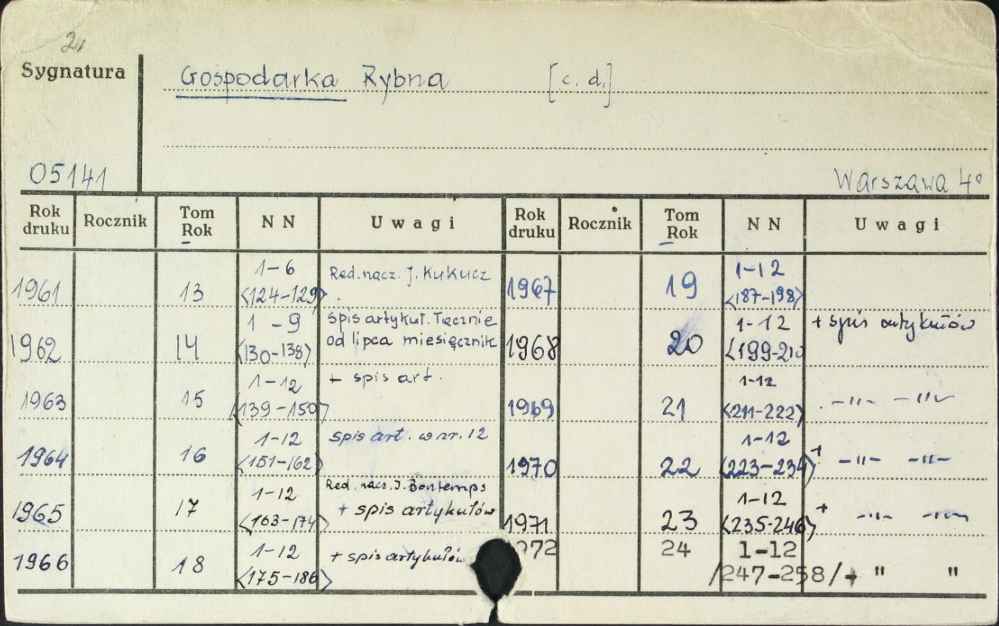 2,
Sygnatura Gospodarka Rybna [c. d.]
05141 Warszawa 4°
Rok druku Rocznik Tom Rok N N Uwagi Rok druku Rocznik Tom Rok N N Uwagi
1961 13 1-6 <124-129> Red. nacz. J. Kukucz
1962 14 1-9 <130-138> spis artykuł. Łącznie od lipca miesięcznik
1963 15 1-12 <139-150> + spis art.
1964 16 1-12 <151-162> spis art. w nr. 12
1965 17 1-12 <163-174> Red. nacz. J. Bontemps + spis artykułów
1966 18 1-12 <175-186> + spis artykułów
1967 19 1-12 <187-198>
1968 20 1-12 <199-210 + spis artykułów
1969 21 1-12 <211-222> -"- -"-
1970 22 1-12 <223-234> + -"- -"-
1971 23 1-12 <235-246> + -"- -"-
1972 24 1-12 /247-258/+ " "